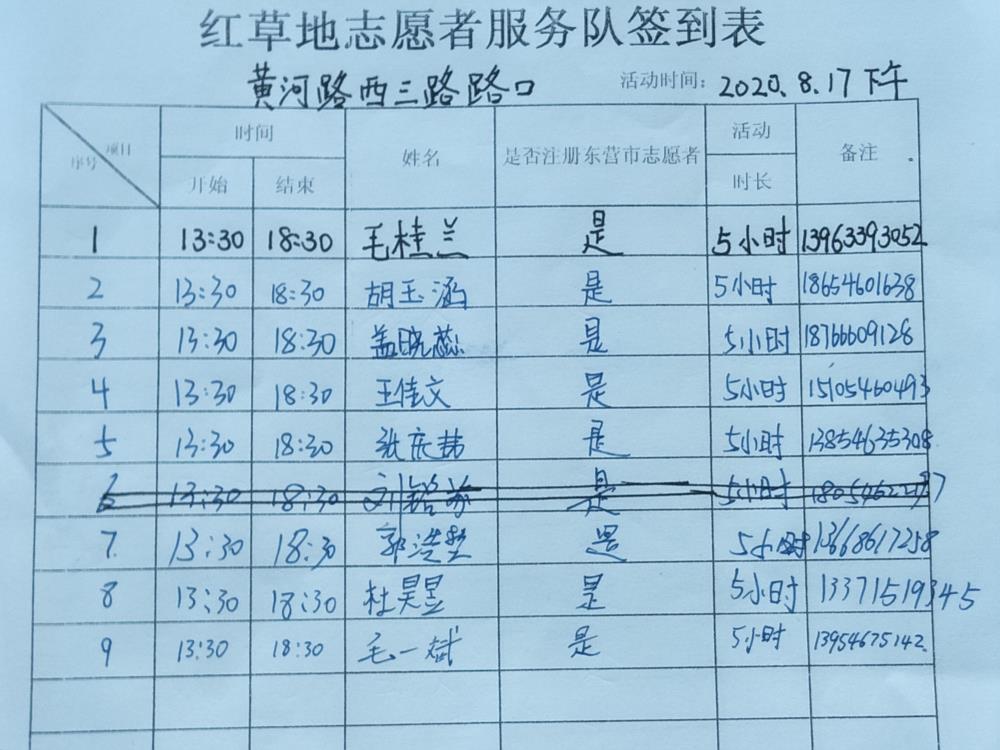 红草地志愿者服务队签到表
黄河路西三路路口 活动时间: 2020.8.17下午
序号 项目 时间 姓名 是否注册东营市志愿者 活动 备注
开始 结束 时长
1 13:30 18:30 毛桂兰 是 5小时 13963393052
2 13:30 18:30 胡玉涵 是 5小时 18654601638
3 13:30 18:30 盖晓蕊 是 5小时 18766609128
4 13:30 18:30 王佳文 是 5小时 15105460493
5 13:30 18:30 张 是 5小时 13854635308
6 13:30 18:30 刘铭 是 5小时
7. 13:30 18:30 郭浩楚 是 5小时 13668617258
8 13:30 18:30 杜昊昱 是 5小时 13371519345
9 13:30 18:30 毛一斌 是 5小时 13954675142